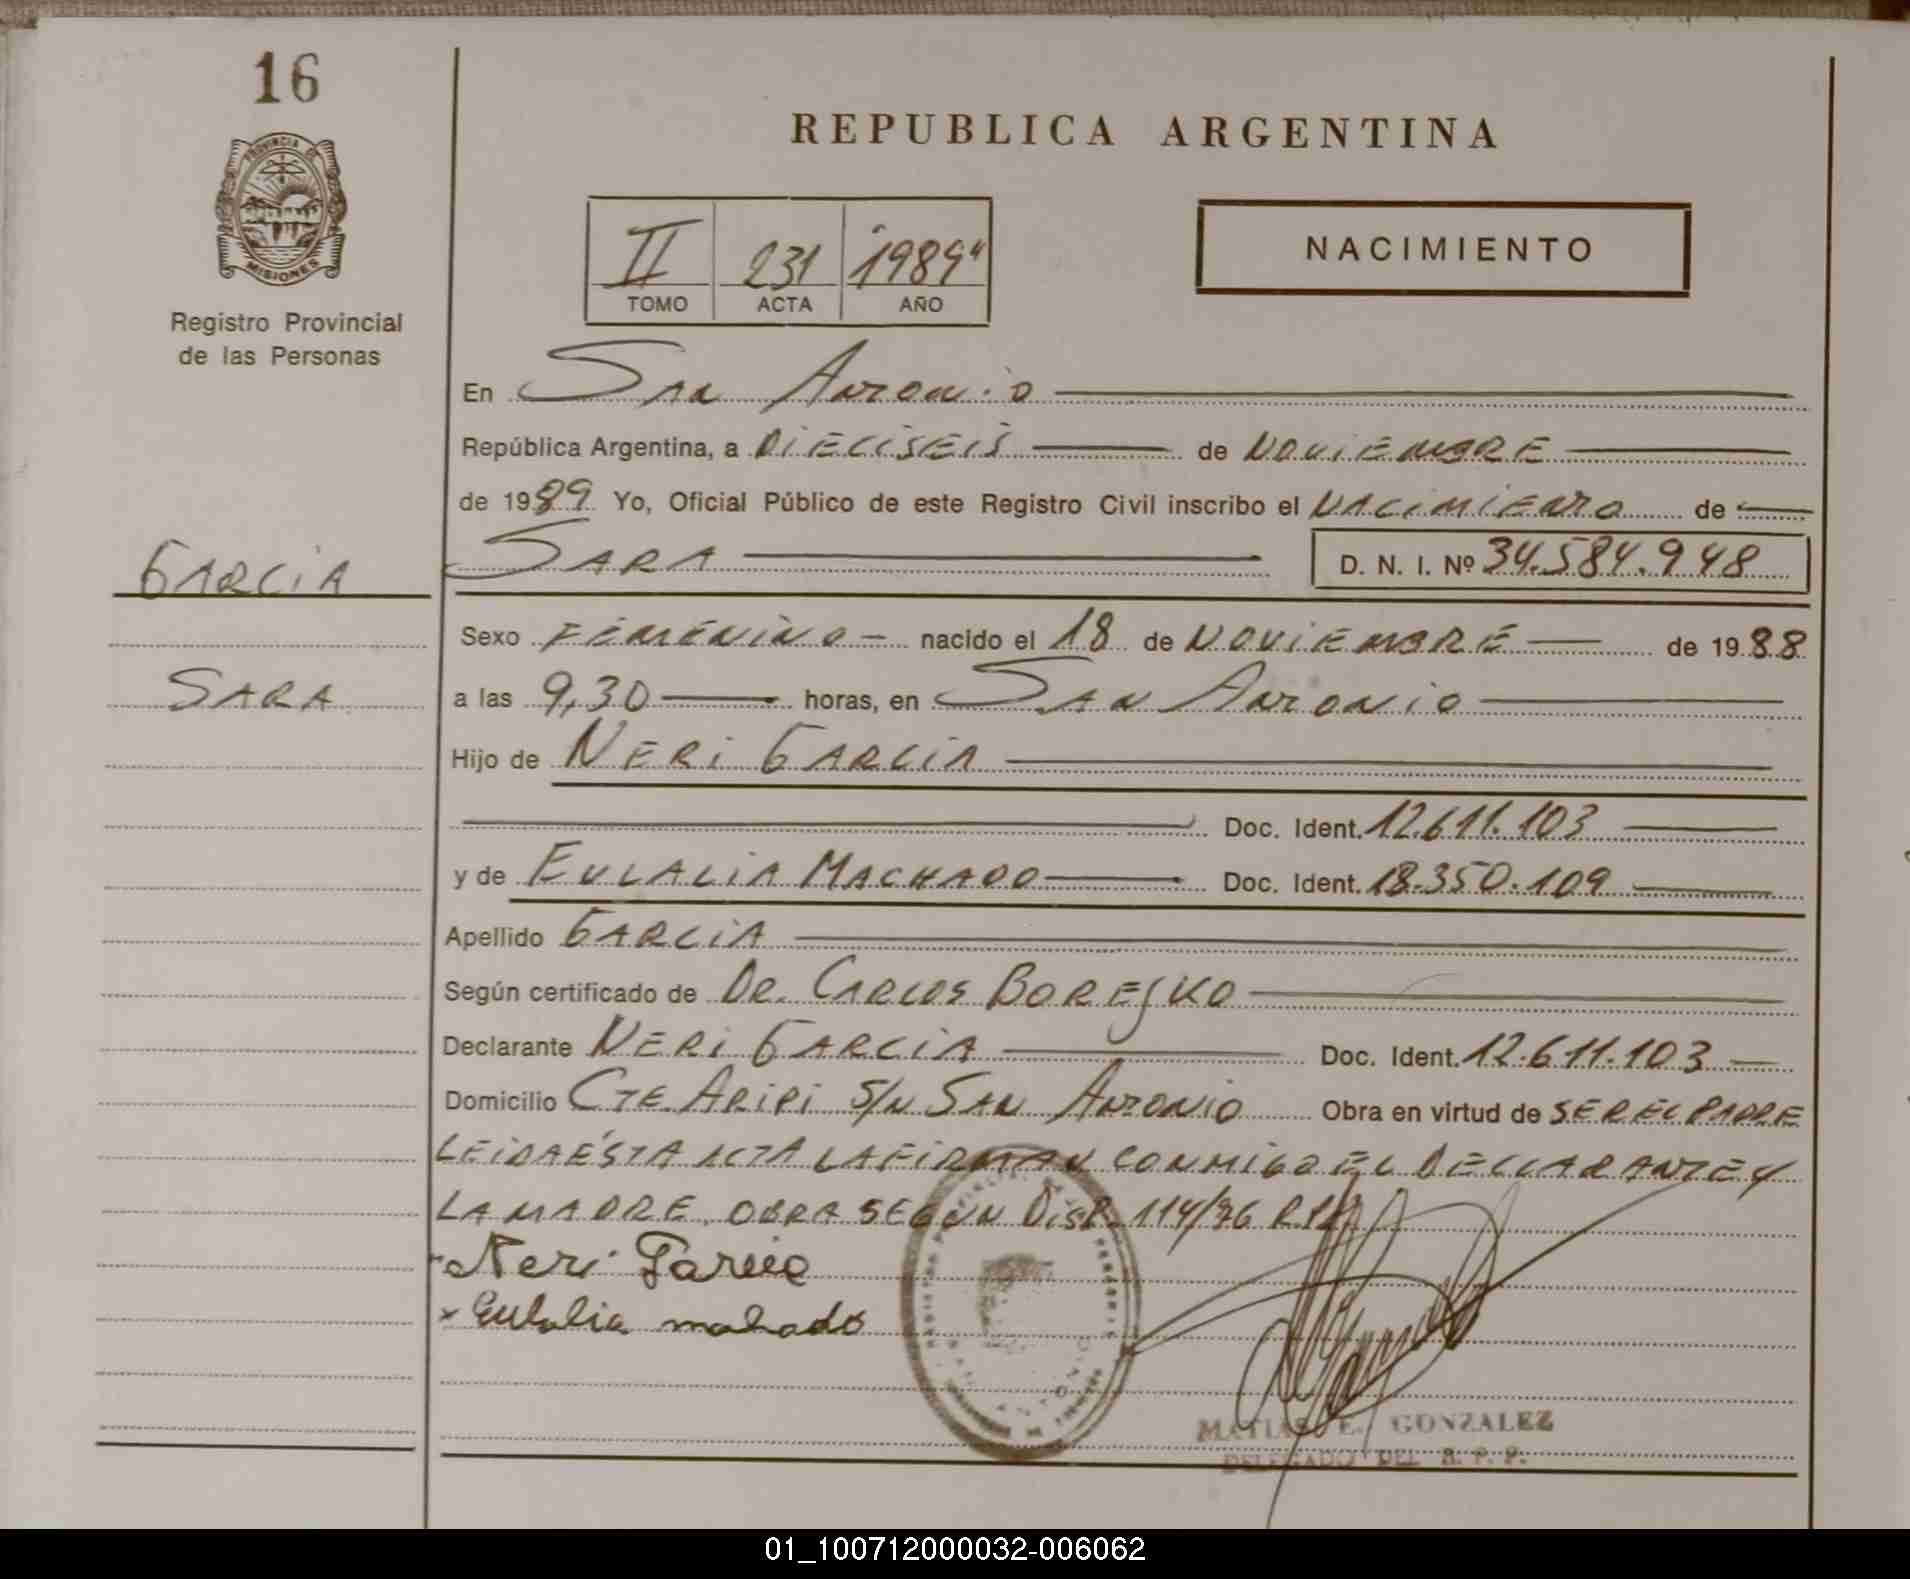 16
REPUBLICA ARGENTINA
PROVINCIA DE
MISIONES
Registro Provincial
de las Personas
II 231 "1989"
TOMO ACTA AÑO
NACIMIENTO
En San Antonio
República Argentina, a DIECISEIS de NOVIEMBRE
de 1989 Yo, Oficial Público de este Registro Civil inscribo el NACIMIENTO de
SARA D. N. I. Nº 34.584.948
GARCIA
Sexo FEMENINO nacido el 18 de NOVIEMBRE de 1988
SARA
a las 9,30 horas, en San Antonio
Hijo de NERI GARCIA
Doc. Ident. 12.611.103
y de EULALIA MACHADO Doc. Ident. 18.350.109
Apellido GARCIA
Según certificado de DR. CARLOS BORESKO
Declarante NERI GARCIA Doc. Ident. 12.611.103
Domicilio CTE. ARIPI S/N SAN ANTONIO Obra en virtud de SER EL PADRE
LEIDA ÉSTA ACTA LA FIRMAN CONMIGO EL DECLARANTE Y
LA MADRE. OBRA SEGUN DISP. 114/76 R.P.P.
Neri Garcia
x Eulalia mahado
MATIAS E. GONZALEZ
DELEGADO DEL R. P. P.
01_100712000032-006062